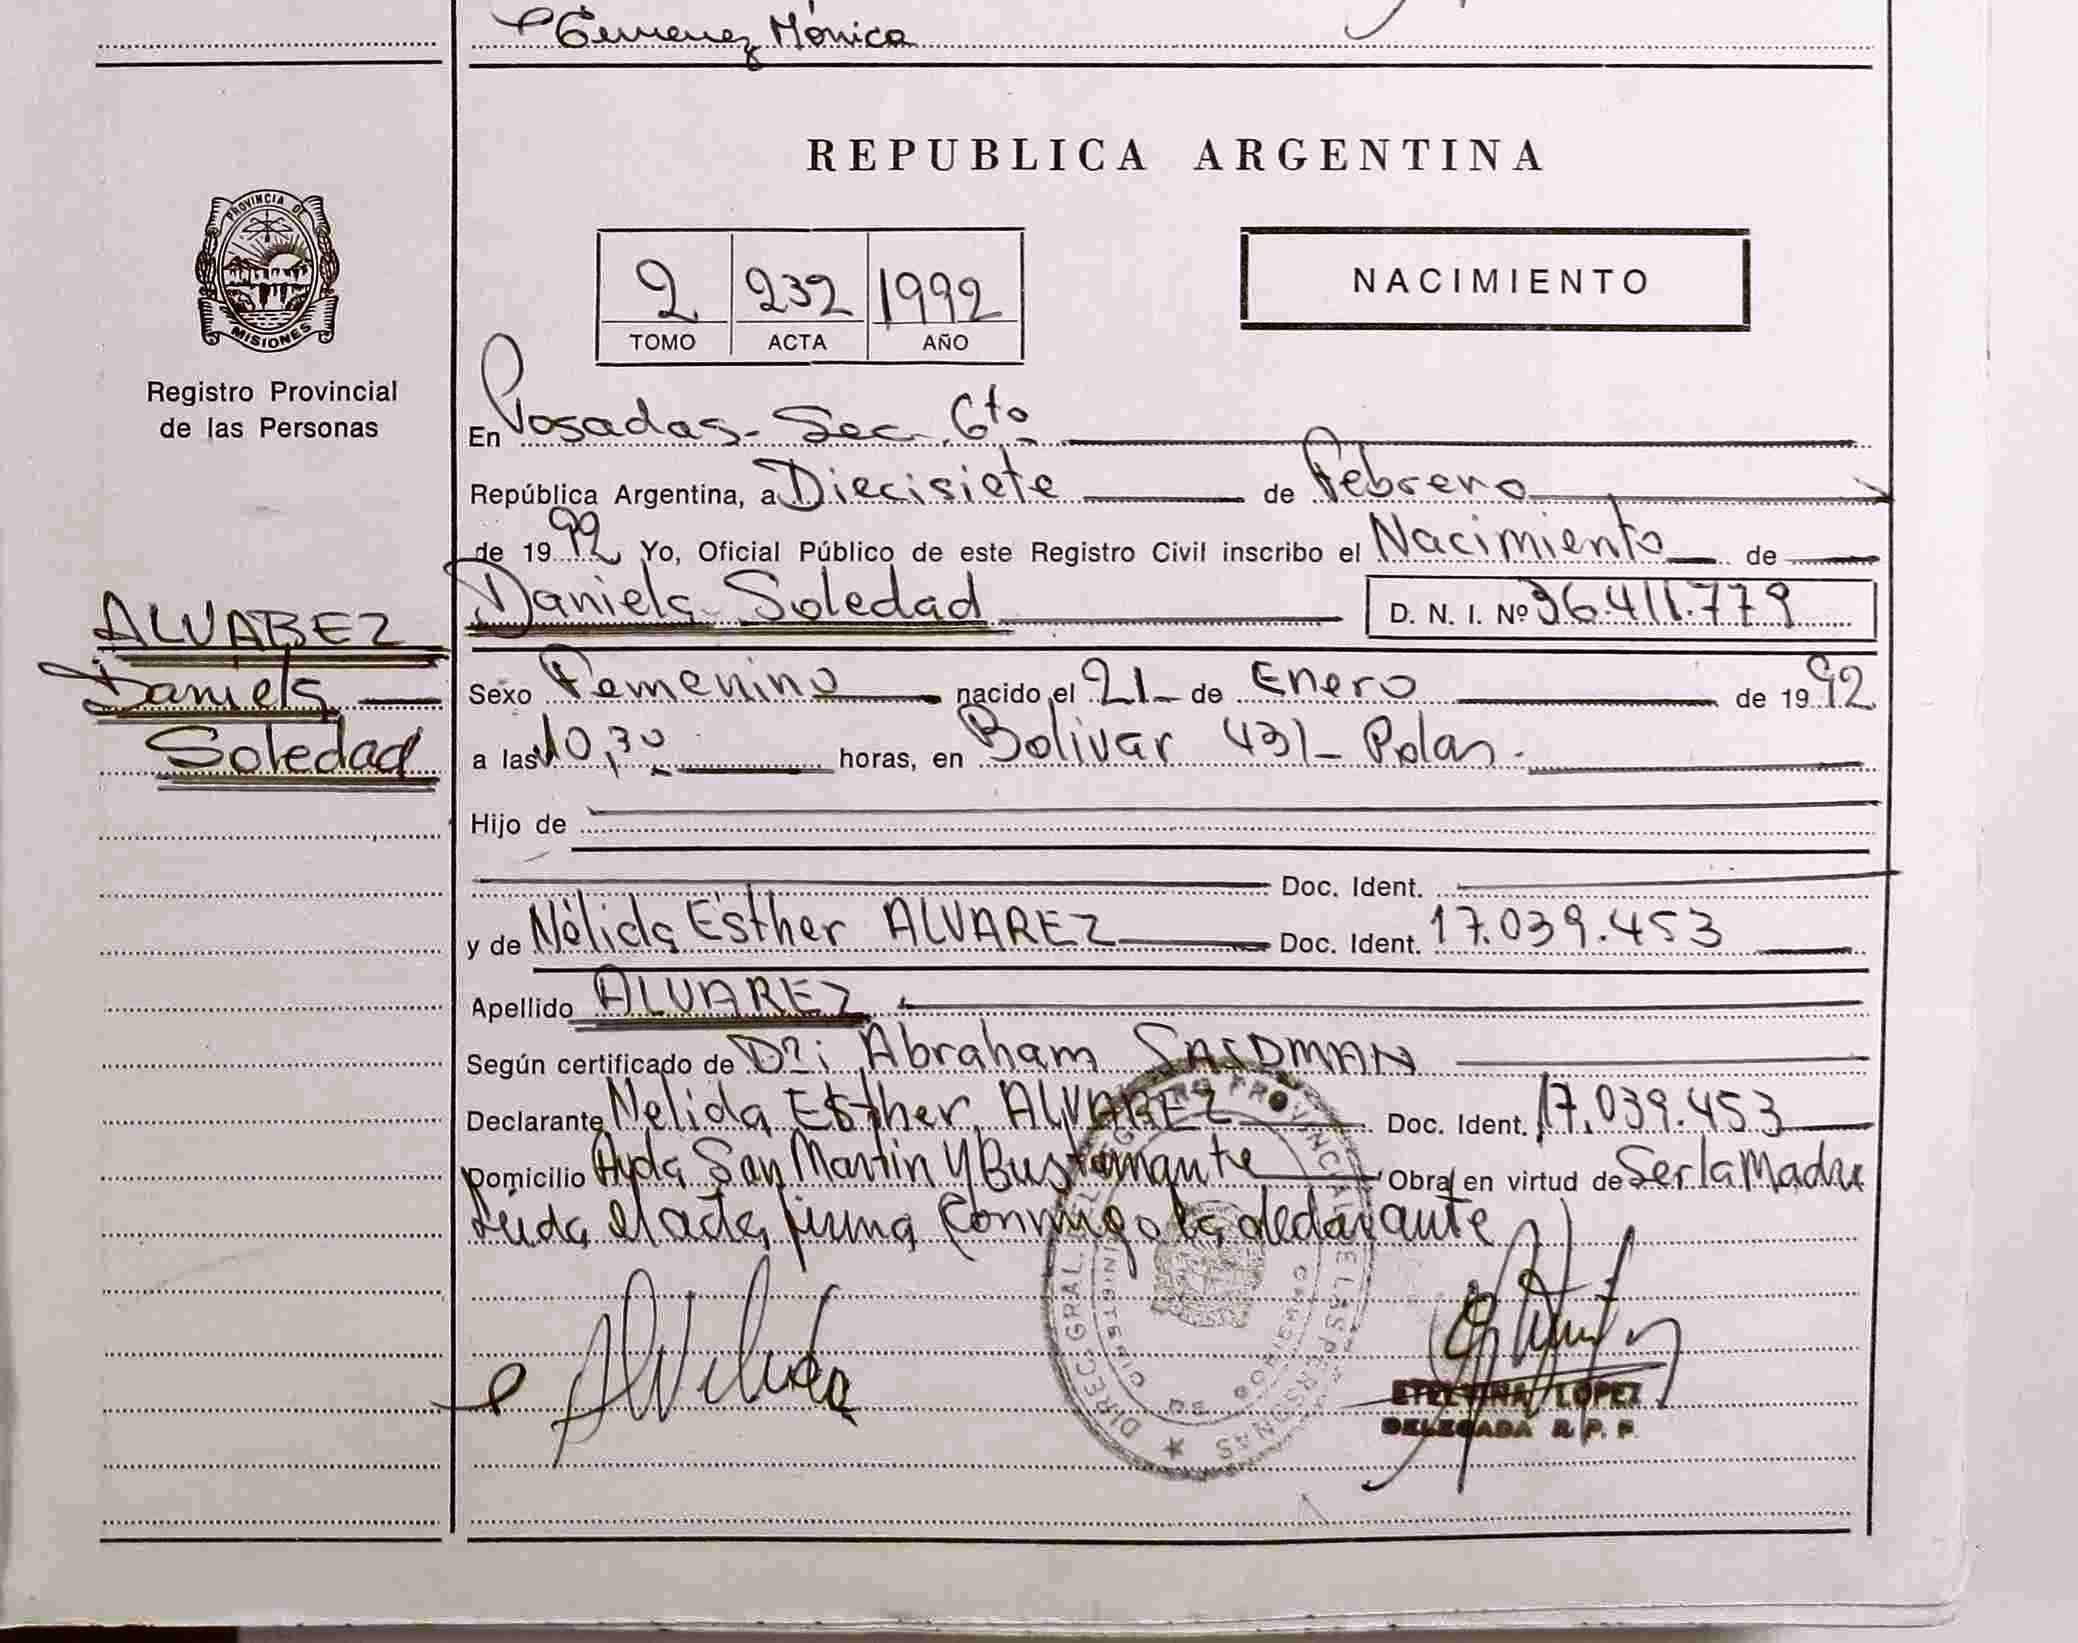 Gimenez Mónica
REPUBLICA ARGENTINA
PROVINCIA DE
MISIONES
Registro Provincial
de las Personas
2 232 1992
TOMO ACTA AÑO
NACIMIENTO
En Posadas - Sec. 6to
República Argentina, a Diecisiete de Febrero
de 1992 Yo, Oficial Público de este Registro Civil inscribo el Nacimiento de
Daniela Soledad D. N. I. Nº 36.411.779
ALVAREZ
Daniela
Soledad
Sexo Femenino nacido el 21 de Enero de 1992
a las 10,30 horas, en Bolivar 431 - Pdas.
Hijo de
Doc. Ident.
y de Nélida Esther ALVAREZ Doc. Ident. 17.039.453
Apellido ALVAREZ
Según certificado de Dr: Abraham
Declarante Nelida Esther ALVAREZ Doc. Ident. 17.039.453
Domicilio Avda San Martin y Bustamante Obra en virtud de Ser la Madre
Leida el acta, firma conmigo la declarante
DIREC. GRAL. DEL REGISTRO PROVINCIAL DE LAS PERSONAS
ETELVINA LOPEZ
DELEGADA R. P. P.